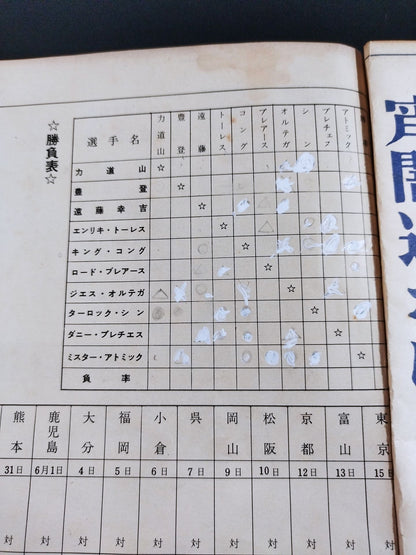 ☆勝負表☆
選手名 力道山 豊登 遠藤 トーレス コング ブレアース オルテガ シン プレチェス アトミック
力道山 ☆
豊登 ☆
遠藤幸吉 ☆
エンリキ・トーレス ☆
キング・コング ☆
ロード・ブレアース ☆
ジエス・オルテガ △ ☆
ターロック・シン ☆
ダニー・プレチエス ☆
ミスター・アトミック ☆
負率
熊本 鹿児島 大分 福岡 小倉 呉 岡山 松阪 京都 富山 東京
31日 6月1日 4日 5日 6日 7日 9日 10日 12日 13日 15日
対 対 対 対 対 対 対 対 対 対 対
宵闇迫